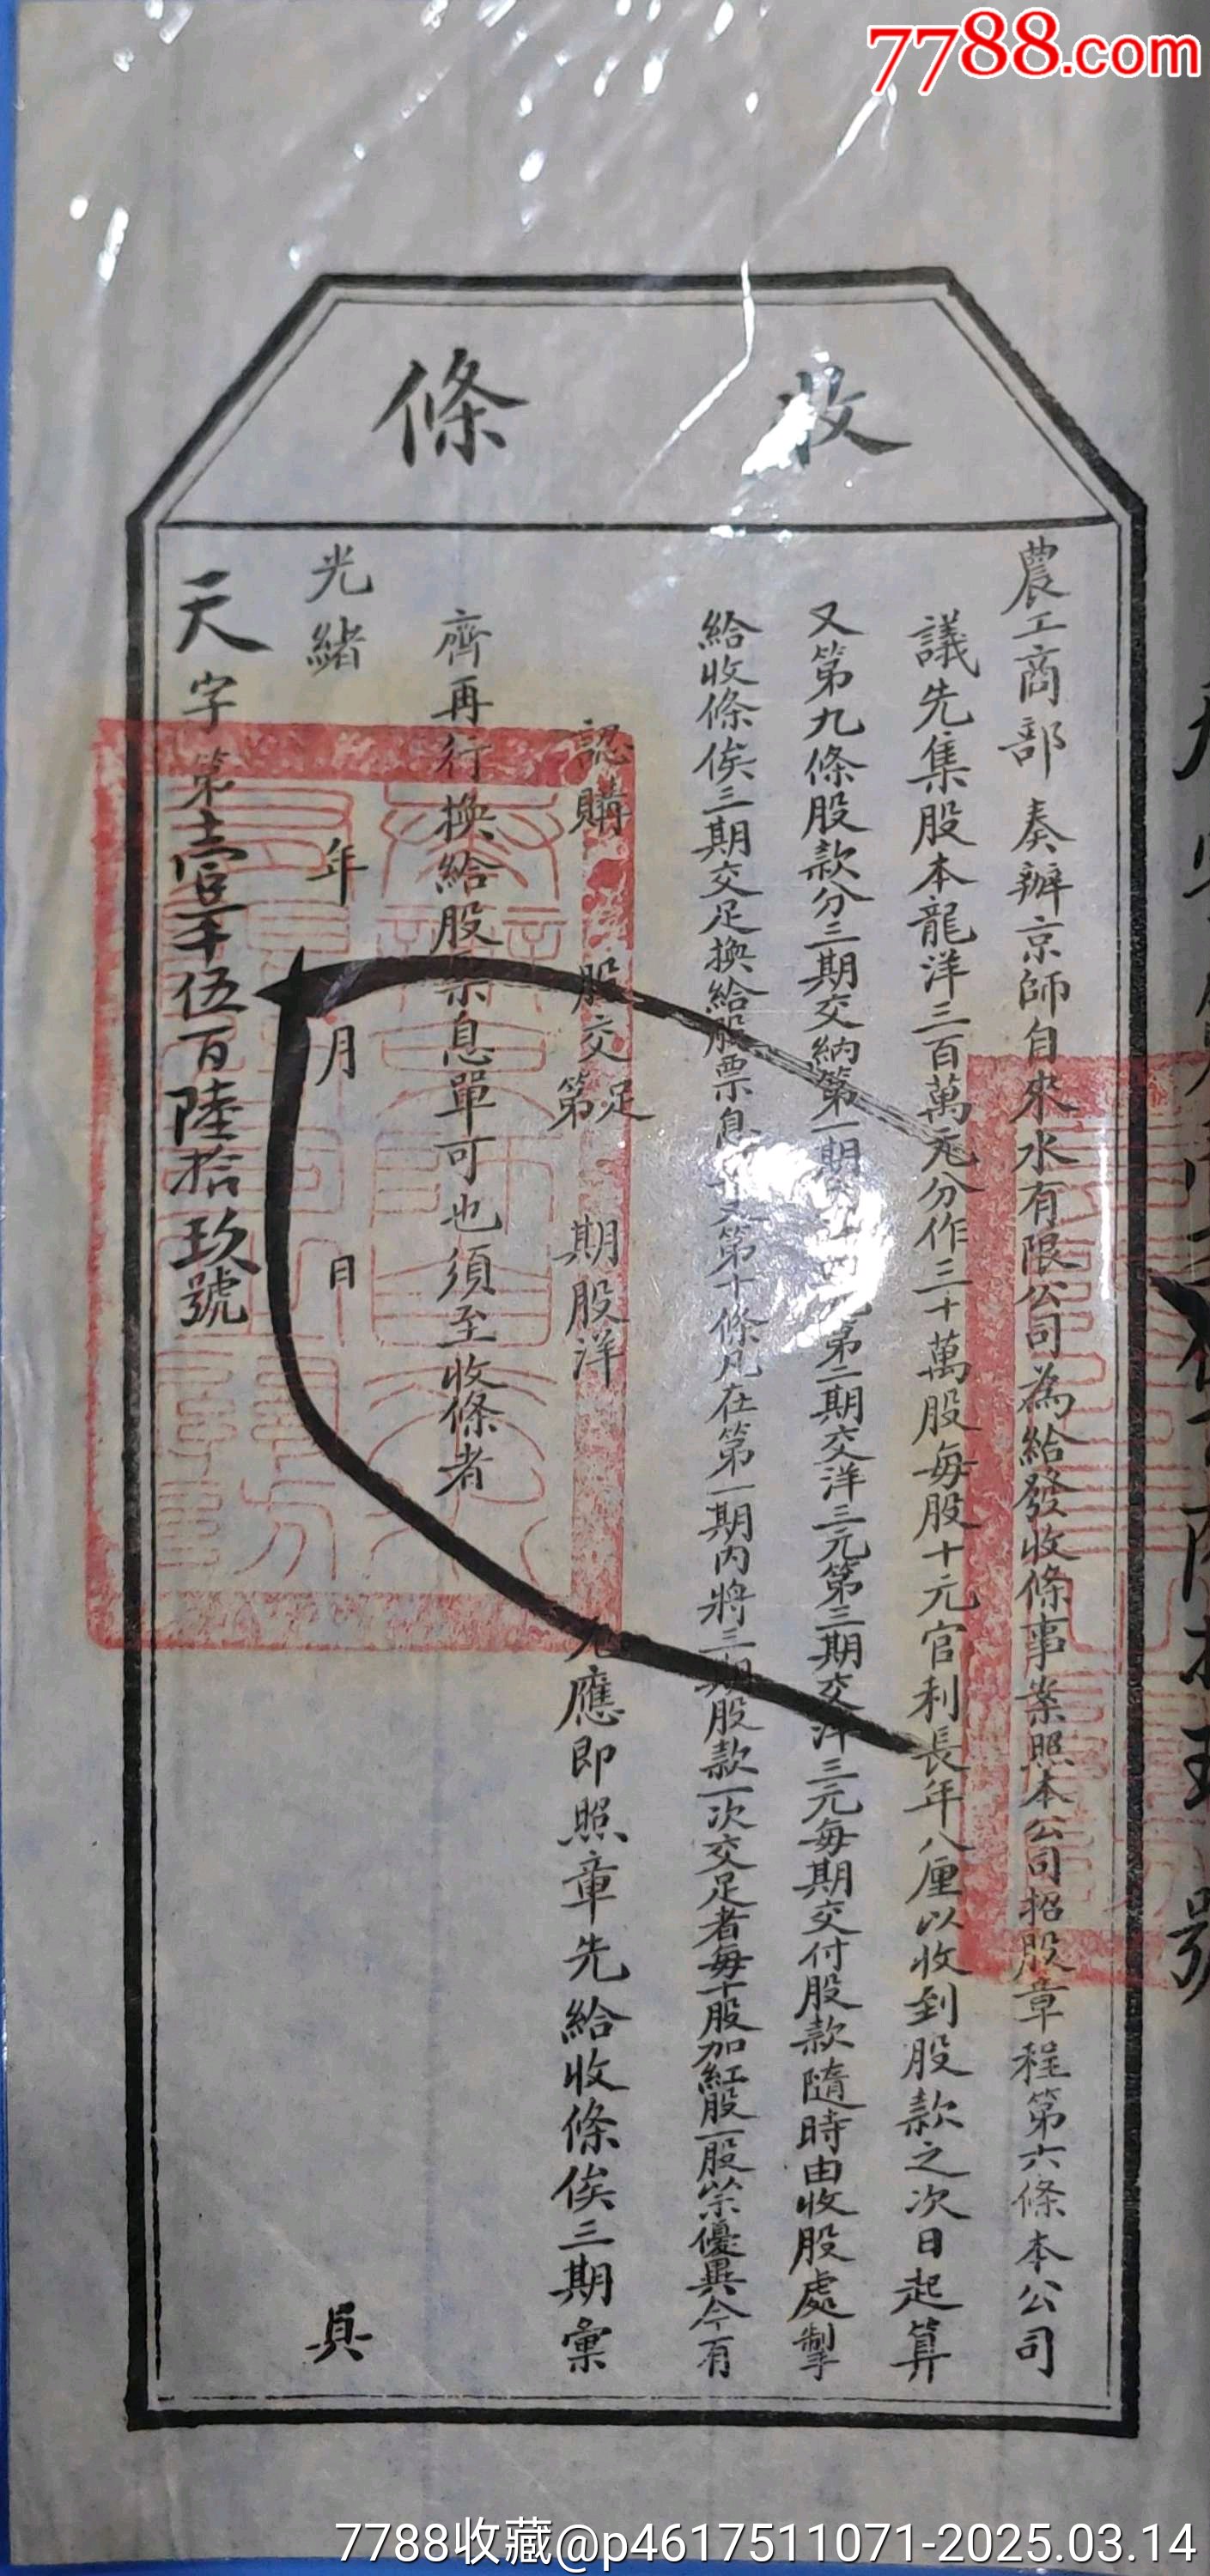 7788.com
收條
農工商部奏辦京師自來水有限公司為給發收條事案照本公司招股章程第六條本公司
議先集股本龍洋三百萬元分作三十萬股每股十元官利長年八厘以收到股款之次日起算
又第九條股款分三期交納第一期交洋四元第二期交洋三元第三期交洋三元每期交付股款隨時由收股處掣
給收條俟三期交足換給股票息又第十條凡在第一期內將三期股款一次交足者每十股加紅股一股以示優異今有
認購 股交足第 期股洋 元應即照章先給收條俟三期彙
齊再行換給股票息單可也須至收條者
光緒 年 月 日 具
天字第壹千伍百陸拾玖號
7788收藏@p4617511071-2025.03.14